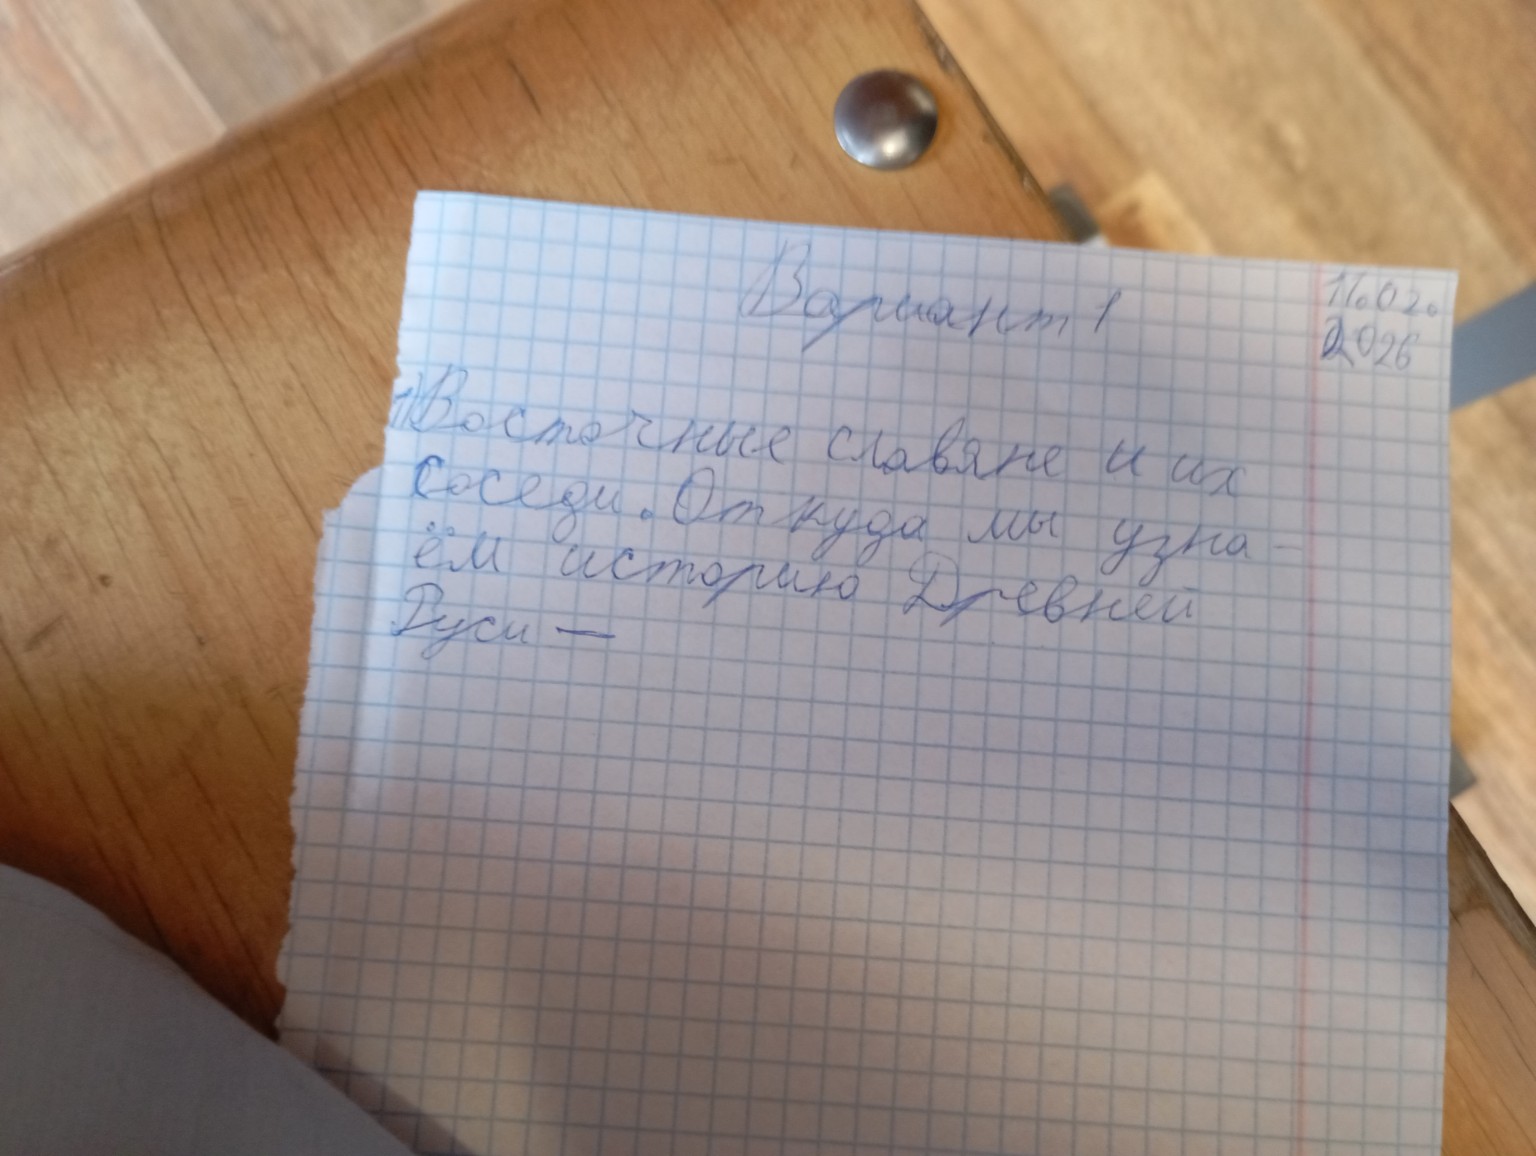 Вариант 1
16.02.
2026
1) Восточные славяне и их
соседи. Откуда мы узна-
ём историю Древней
Руси —